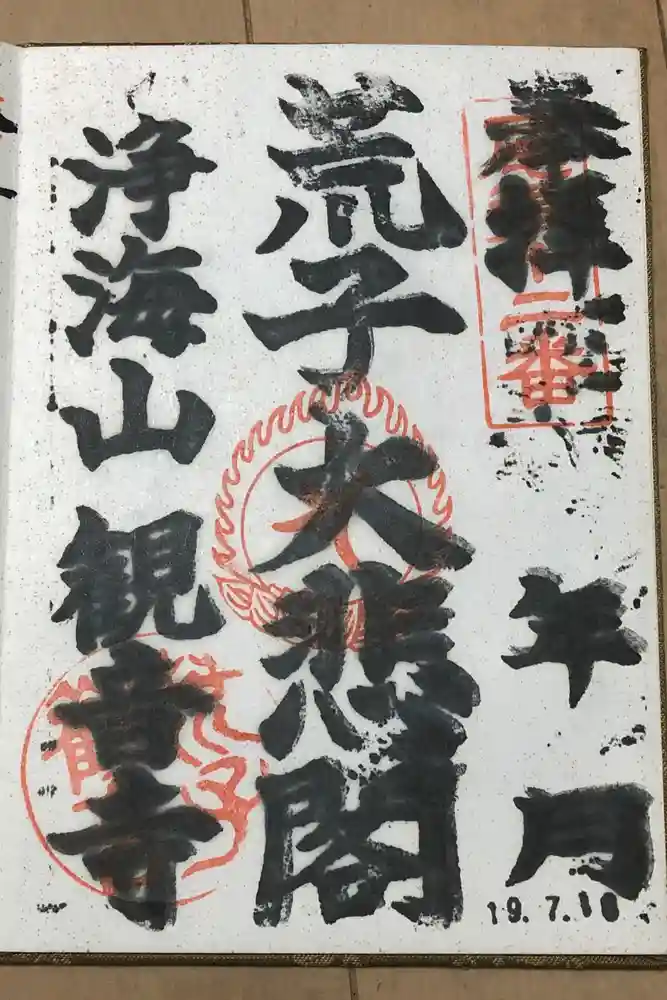 奉拝
年
月
19.7.18
荒子大悲閣
浄海山観音寺
二番